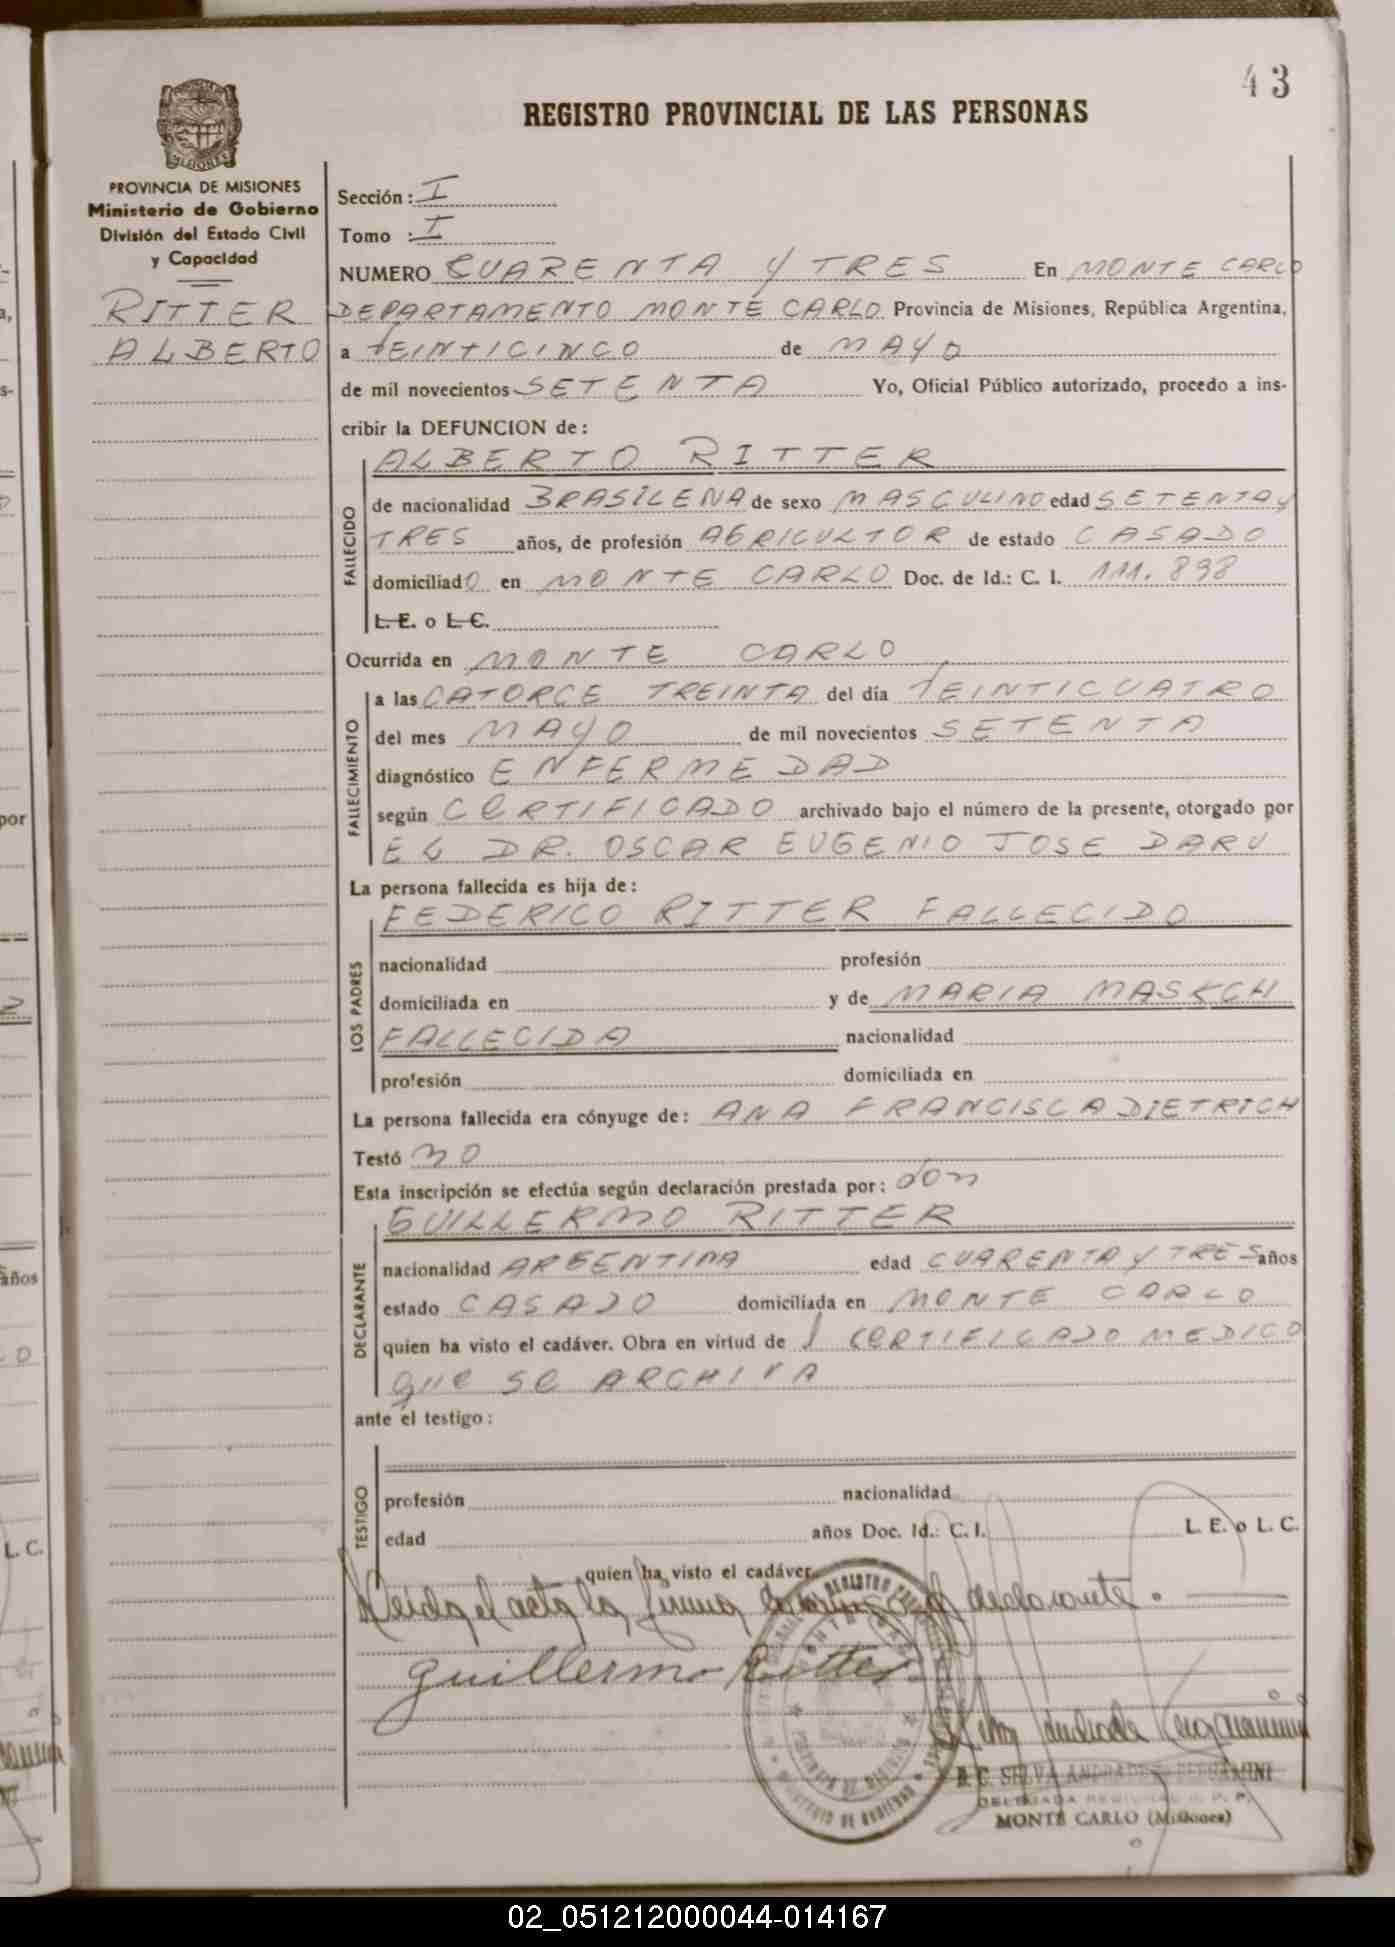 43
REGISTRO PROVINCIAL DE LAS PERSONAS
MISIONES
PROVINCIA DE MISIONES
Ministerio de Gobierno
División del Estado Civil
y Capacidad
RITTER
ALBERTO
Sección: I
Tomo : I
NUMERO CUARENTA Y TRES En MONTE CARLO
DEPARTAMENTO MONTE CARLO Provincia de Misiones, República Argentina,
a VEINTICINCO de MAYO
de mil novecientos SETENTA Yo, Oficial Público autorizado, procedo a ins-
cribir la DEFUNCION de:
ALBERTO RITTER
FALLECIDO
de nacionalidad BRASILENA de sexo MASCULINO edad SETENTA y
TRES años, de profesión AGRICULTOR de estado CASADO
domiciliadO en MONTE CARLO Doc. de Id.: C. I. 111.898
L. E. o L. C.
Ocurrida en MONTE CARLO
FALLECIMIENTO
a las CATORCE TREINTA del día VEINTICUATRO
del mes MAYO de mil novecientos SETENTA
diagnóstico ENFERMEDAD
según CERTIFICADO archivado bajo el número de la presente, otorgado por
EL DR. OSCAR EUGENIO JOSE DARU
La persona fallecida es hija de:
LOS PADRES
FEDERICO RITTER FALLECIDO
nacionalidad profesión
domiciliada en y de MARIA MASKCH
FALLECIDA nacionalidad
profesión domiciliada en
La persona fallecida era cónyuge de: ANA FRANCISCA DIETRICH
Testó no
Esta inscripción se efectúa según declaración prestada por: don
GUILLERMO RITTER
DECLARANTE
nacionalidad ARGENTINA edad CUARENTA y TRES años
estado CASADO domiciliada en MONTE CARLO
quien ha visto el cadáver. Obra en virtud de 1 CERTIFICADO MEDICO
que se ARCHIVA
ante el testigo:
TESTIGO
profesión nacionalidad
edad años Doc. Id.: C. I. L. E. o L. C.
quien ha visto el cadáver.
Leida el acta la firma el declarante.
Guillermo Ritter
B. C. SELVA ANDRADE BERGAMINI
DELEGADA REGIONAL R. P. P.
MONTE CARLO (Misiones)
02_051212000044-014167